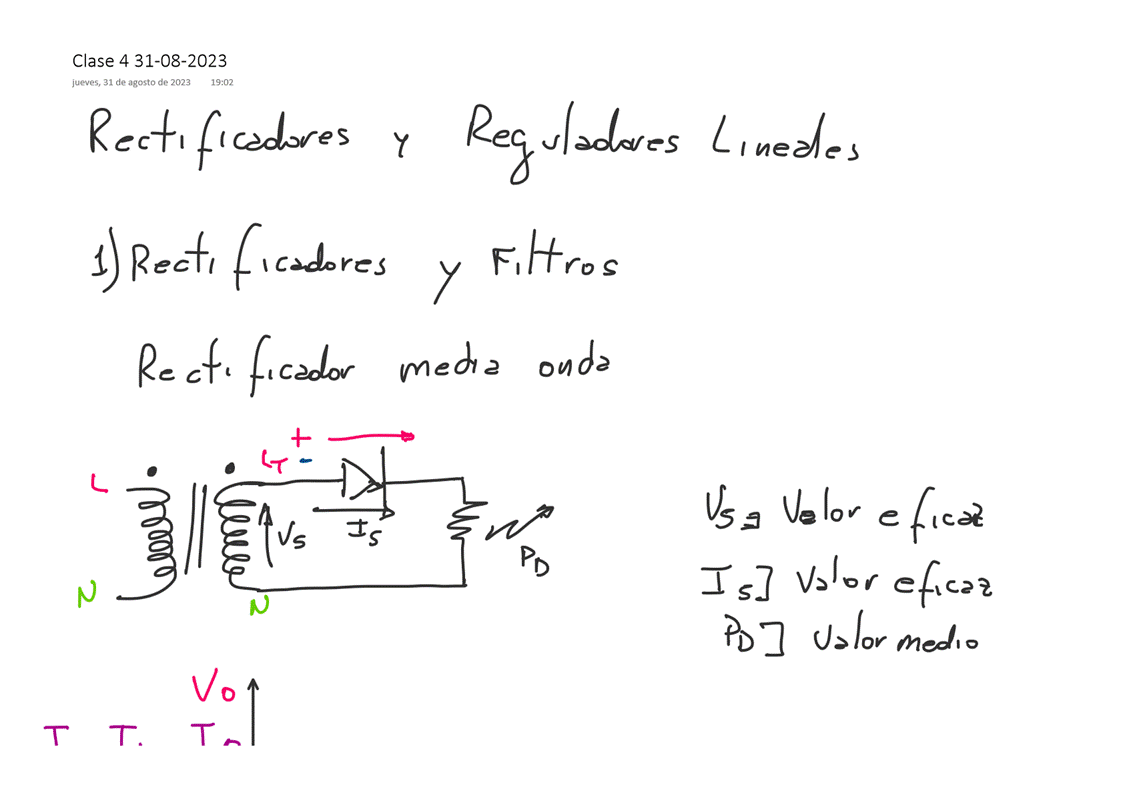 Clase 4 31-08-2023
jueves, 31 de agosto de 2023 19:02
Rectificadores y Reguladores Lineales
1) Rectificadores y Filtros
Rectificador media onda
+
LT -
L
Vs
Is
PD
N
N
Vs] Valor eficaz
Is] Valor eficaz
PD] Valor medio
Vo